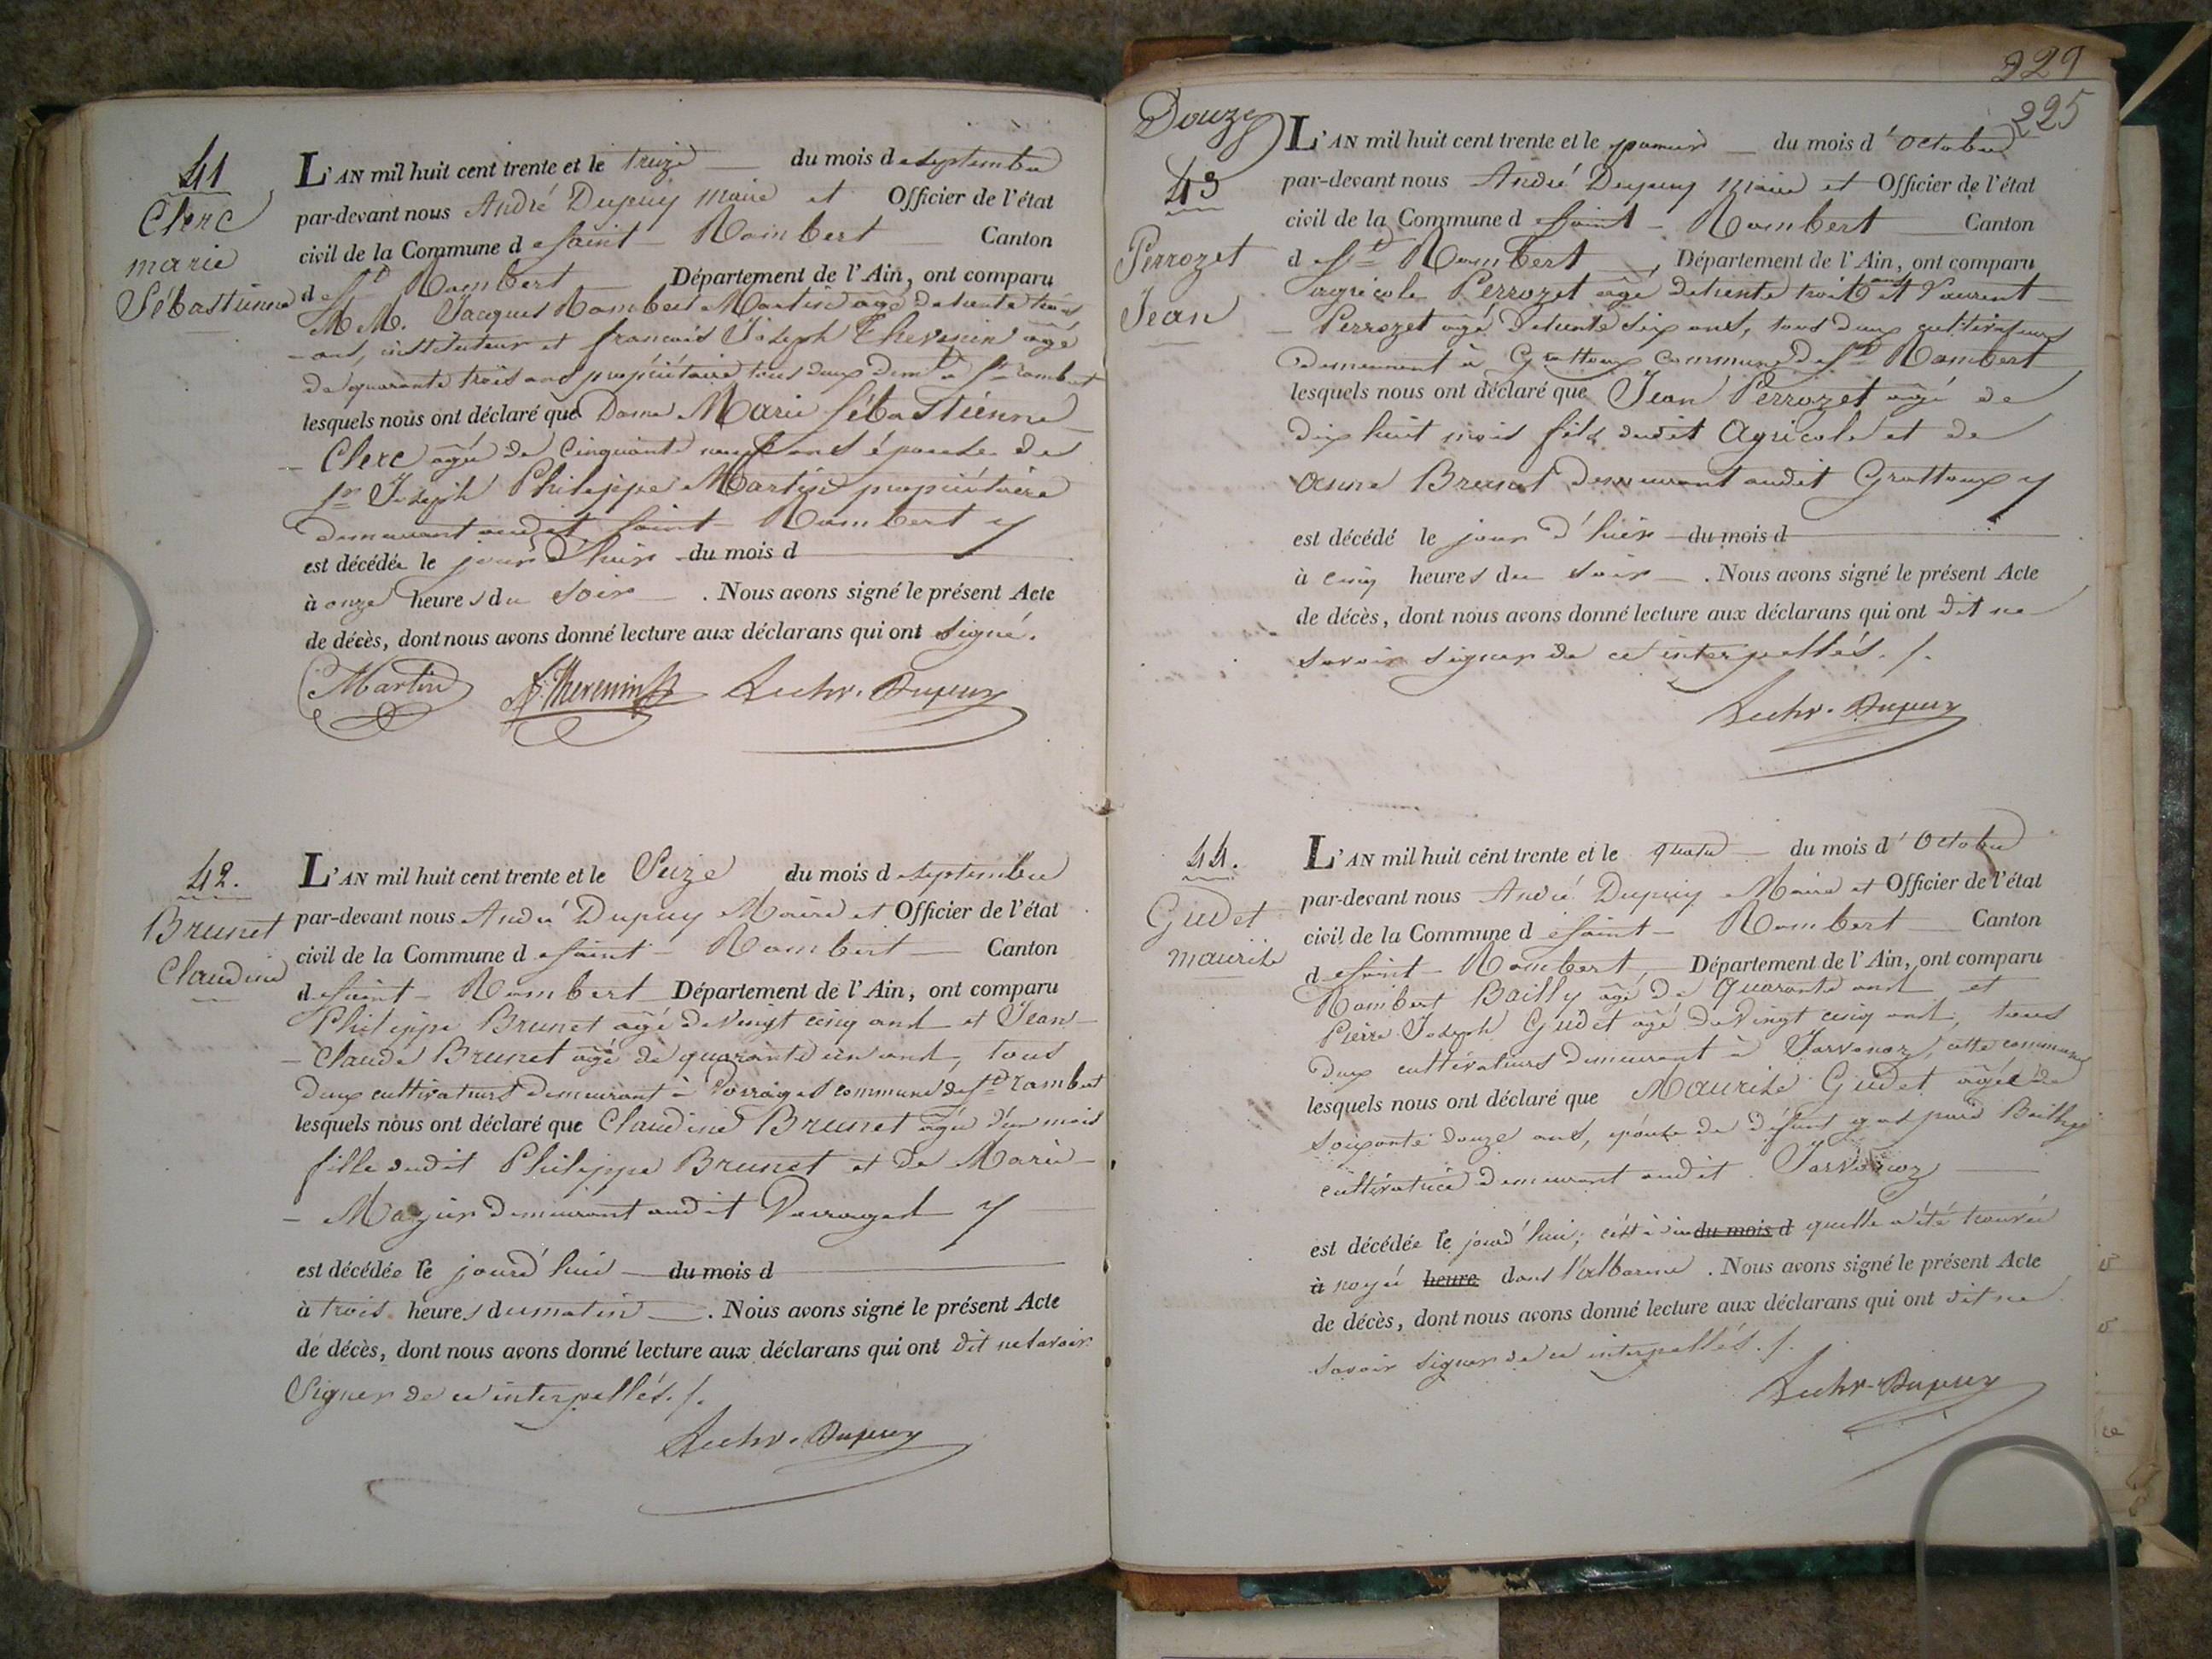 41
Clerc
marie
Sébastienne
L'AN mil huit cent trente et le treize du mois de septembre
par-devant nous André Dupuy maire et Officier de l'état
civil de la Commune de Saint-Rambert Canton
de St Rambert Département de l'Ain, ont comparu
MM. Jacques Rambert Martin agé de trente trois
ans, instituteur et francois Joseph Thevenin agé
de quarante trois ans propriétaire tous deux demt à St rambert
lesquels nous ont déclaré que Dame Marie Sébastienne
Clerc agée de Cinquante neuf ans épouse de
Sr Joseph Philippe Martin propriétaire
demeurant audit Saint-Rambert
est décédée le jour d'hier du mois d
à onze heures du soir. Nous avons signé le présent Acte
de décès, dont nous avons donné lecture aux déclarans qui ont signé.
Martin Thevenin Dupuy
42.
Brunet
Claudine
L'AN mil huit cent trente et le Seize du mois de septembre
par-devant nous André Dupuy Maire et Officier de l'état
civil de la Commune de Saint-Rambert Canton
de Saint-Rambert Département de l'Ain, ont comparu
Philippe Brunet agé de vingt cinq ans et Jean-
Claude Brunet agé de quarante un ans, tous
deux cultivateurs demeurant à Vorrages commune de St rambert
lesquels nous ont déclaré que Claudine Brunet agée d'un mois
fille dudit Philippe Brunet et de Marie
Mazuir demeurant audit Vorrages
est décédée le jourd'hui du mois d
à trois heures du matin. Nous avons signé le présent Acte
de décès, dont nous avons donné lecture aux déclarans qui ont dit ne savoir
Signer de ce interpellés./.
Dupuy
229
225
Douze
43
Perrozet
Jean
L'AN mil huit cent trente et le premier du mois d'Octobre
par-devant nous André Dupuy Maire et Officier de l'état
civil de la Commune de Saint-Rambert Canton
de St Rambert, Département de l'Ain, ont comparu
agricole Perrozet agé de trente trois ans et Laurent
Perrozet agé de trente six ans, tous deux cultivateurs
demeurant à Grattoux commune de St Rambert
lesquels nous ont déclaré que Jean Perrozet agé de
dix huit mois fils dudit Agricole et de
anne Brunet demeurant audit Grattoux
est décédé le jour d'hier du mois d
à cinq heures du soir. Nous avons signé le présent Acte
de décès, dont nous avons donné lecture aux déclarans qui ont dit ne
savoir signer de ce interpellés./.
Dupuy
44.
Gudet
maurise
L'AN mil huit cent trente et le quatre du mois d'Octobre
par-devant nous André Dupuy Maire et Officier de l'état
civil de la Commune de Saint-Rambert Canton
de Saint-Rambert, Département de l'Ain, ont comparu
Rambert Bailly agé de Quarante ans et
Pierre Joseph Gudet agé de vingt cinq ans, tous
deux cultivateurs demeurant à Javornoz, cette commune
lesquels nous ont déclaré que Maurise Gudet agée de
soixante douze ans, épouse de défunt Bailly
cultivatrice demeurant audit Javornoz
est décédée le jourd'hui, c'est à dire du mois d quelle a été trouvée
à noyée heure dans l'albarine. Nous avons signé le présent Acte
de décès, dont nous avons donné lecture aux déclarans qui ont dit ne
savoir signer de ce interpellés./.
Dupuy